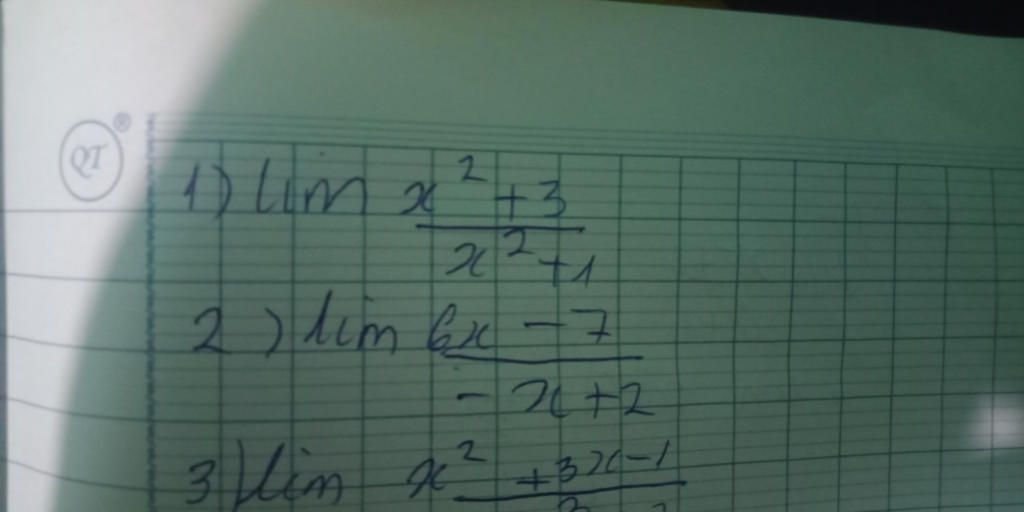 QT ®
1) lim x² + 3
x² + 1
2) lim 6x - 7
- x + 2
3) lim x² + 3x - 1